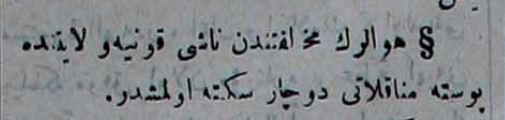 § هوالرك مخالفتندن ناشی قونیه‌ولایتنده
پوسته مناقلاتی دوچار سكته اولمشدر.